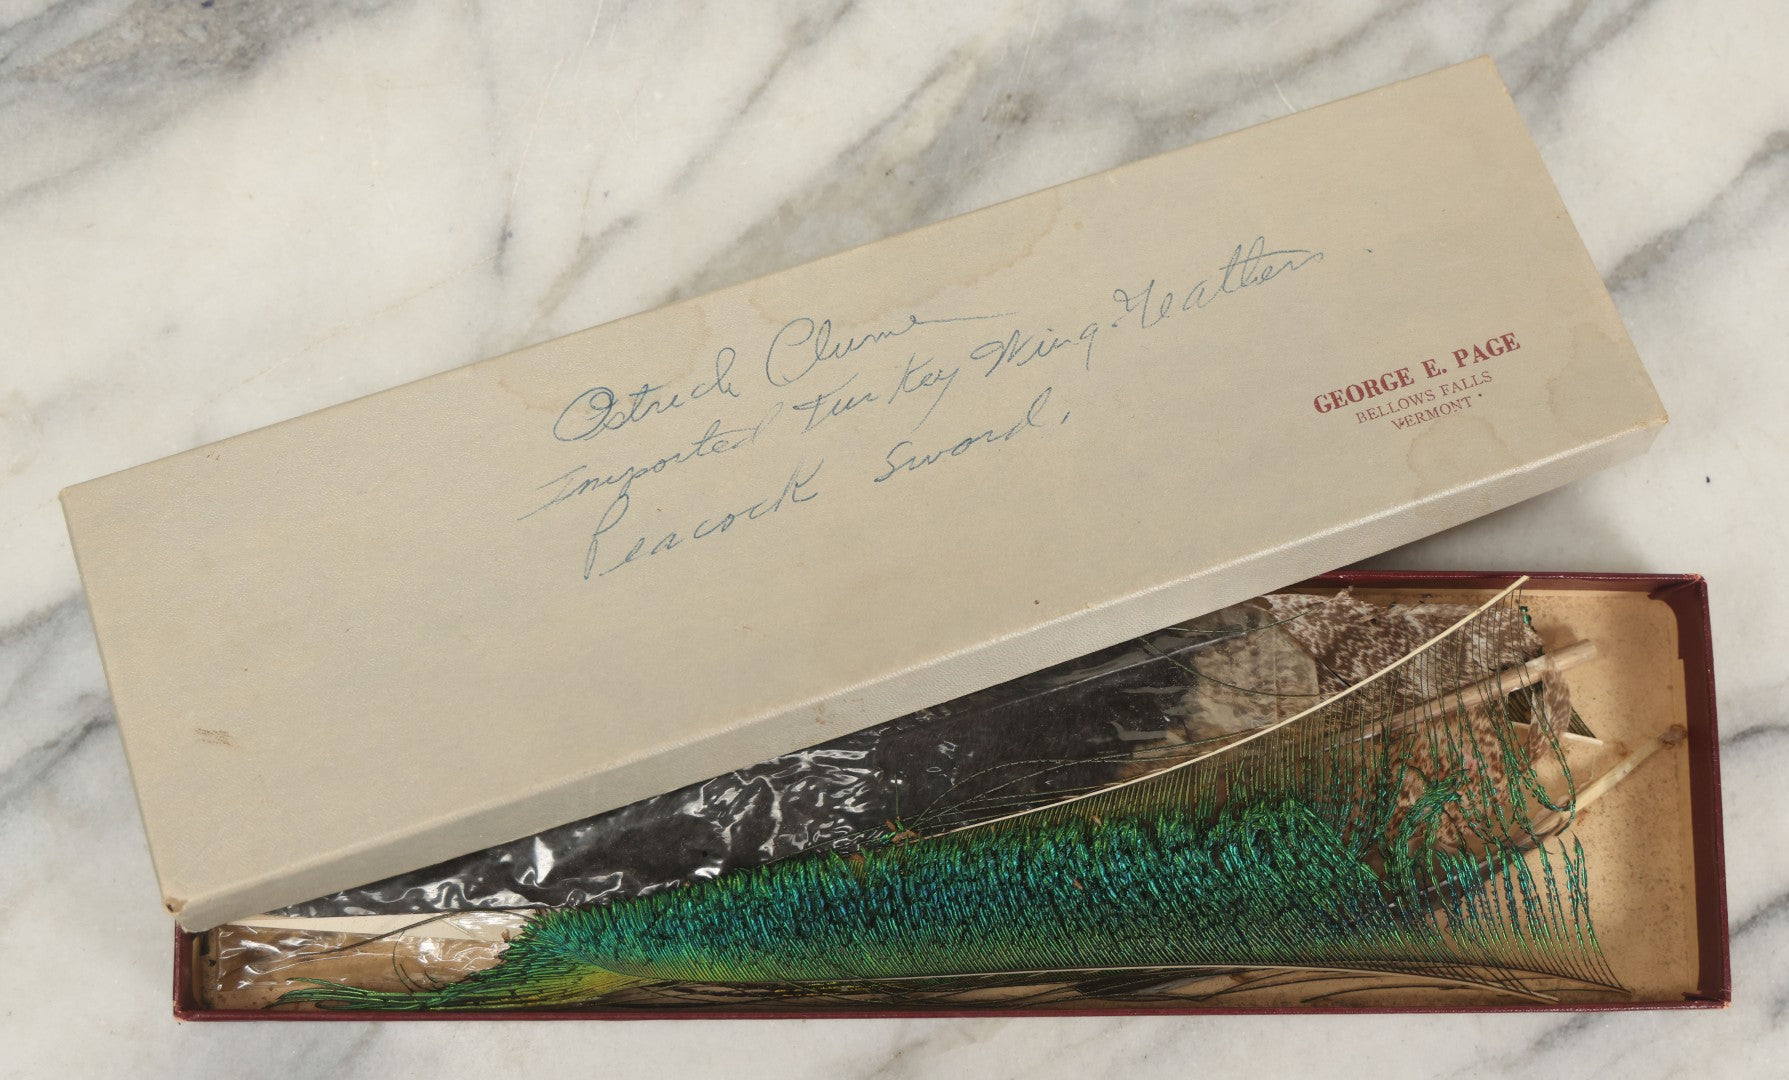 Ostrich Plume
Imported Turkey Wing-Feathers
Peacock Sword.
GEORGE E. PAGE
BELLOWS FALLS
VERMONT